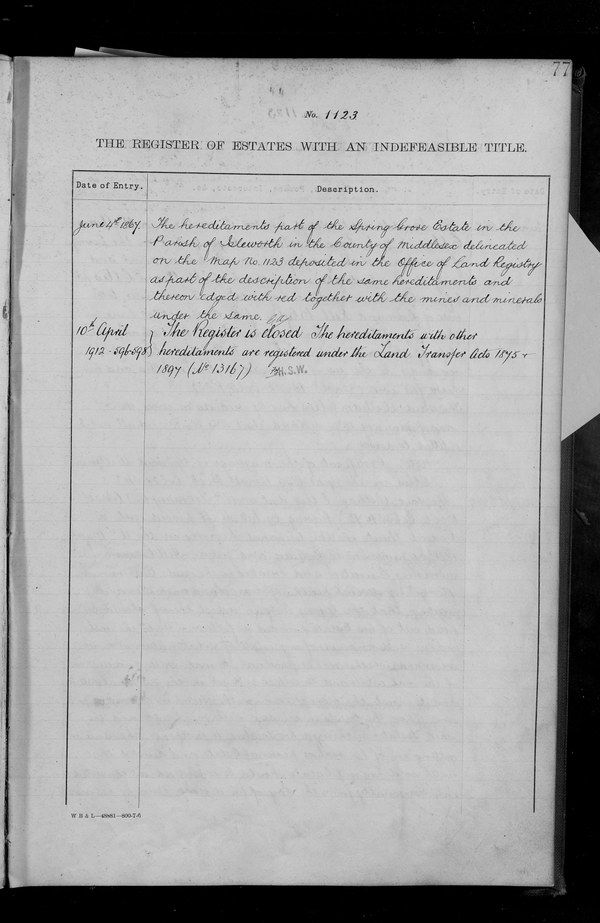 77
No. 1123
THE REGISTER OF ESTATES WITH AN INDEFEASIBLE TITLE.
Date of Entry. Description.
June 4th 1867 The hereditaments part of the Spring Grove Estate in the
Parish of Isleworth in the County of Middlesex delineated
on the Map No. 1123 deposited in the Office of Land Registry
as part of the description of the same hereditaments and
thereon edged with red together with the mines and minerals
under the same.
10th April } The Register is closed The hereditaments with other
1912 · 596-598 } hereditaments are registered under the Land Transfer Acts 1875 &
1897 (No 13167) H.S.W.
W B & L—46683—800-7-6